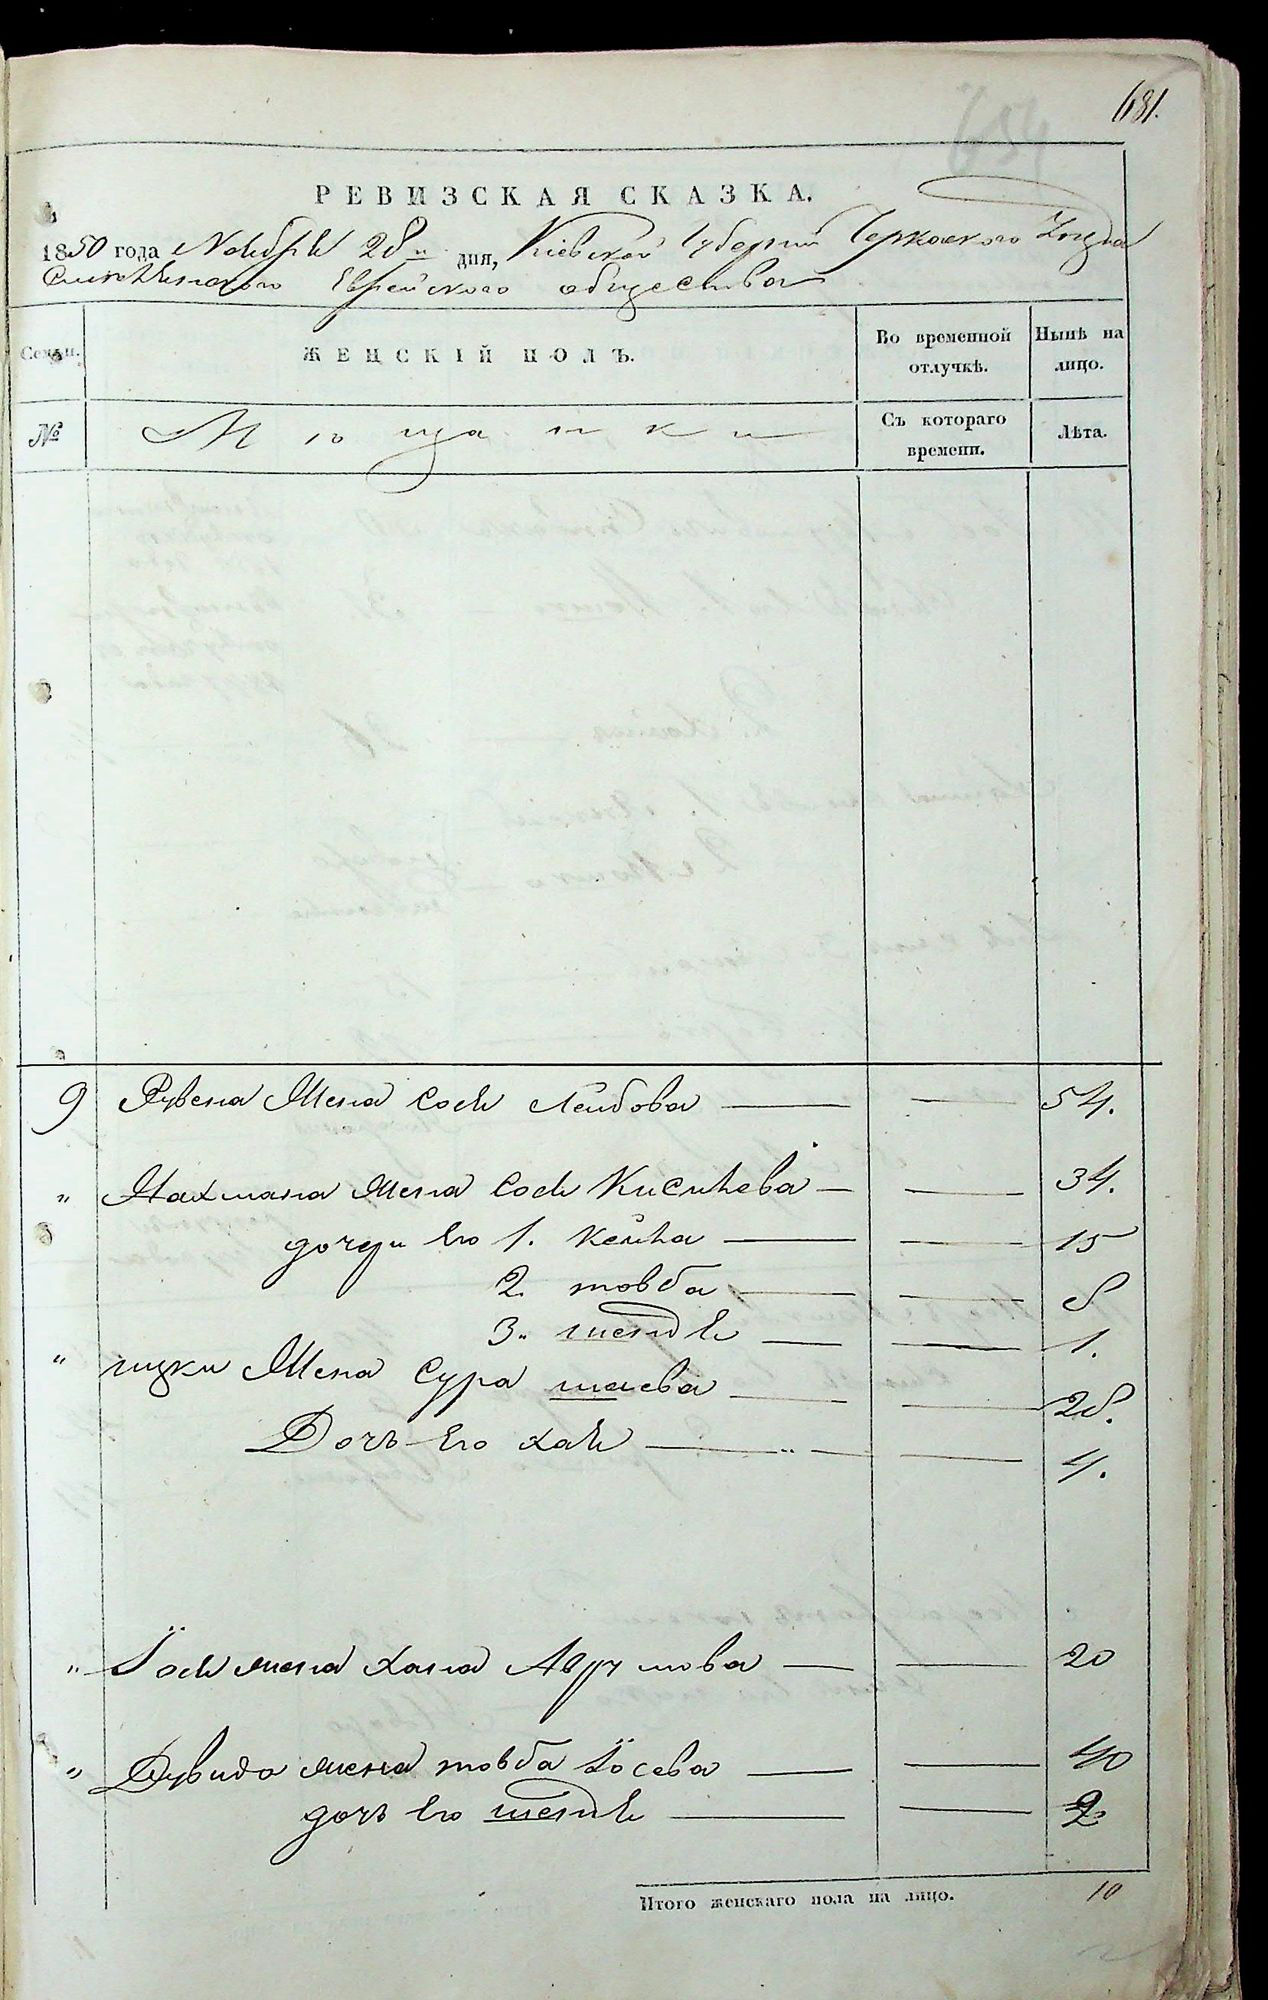 681.
654
РЕВИЗСКАЯ СКАЗКА.
1850 года Ноября 28 дня, Кіевской Губерніи Черкаского Уезда
Еврейского общества
Семьи. ЖЕНСКІЙ ПОЛЪ. Во временной отлучкѣ. Нынѣ на лицо.
№ Мѣщанки Съ котораго времени. Лѣта.
9 Рувена Жена Сося Лейбова 54.
" Нахмана жена Сося Кисилева 34.
дочери его 1. Кейла 15
2. товба 8
3. шендля 1.
" ицки Жена Сура шаева 28.
Дочь его хая 4.
" Іося жена хана Аврумова 20
" Дувида жена товба Іосева 40
дочь его шендля 2.
Итого женскаго пола на лицо. 10